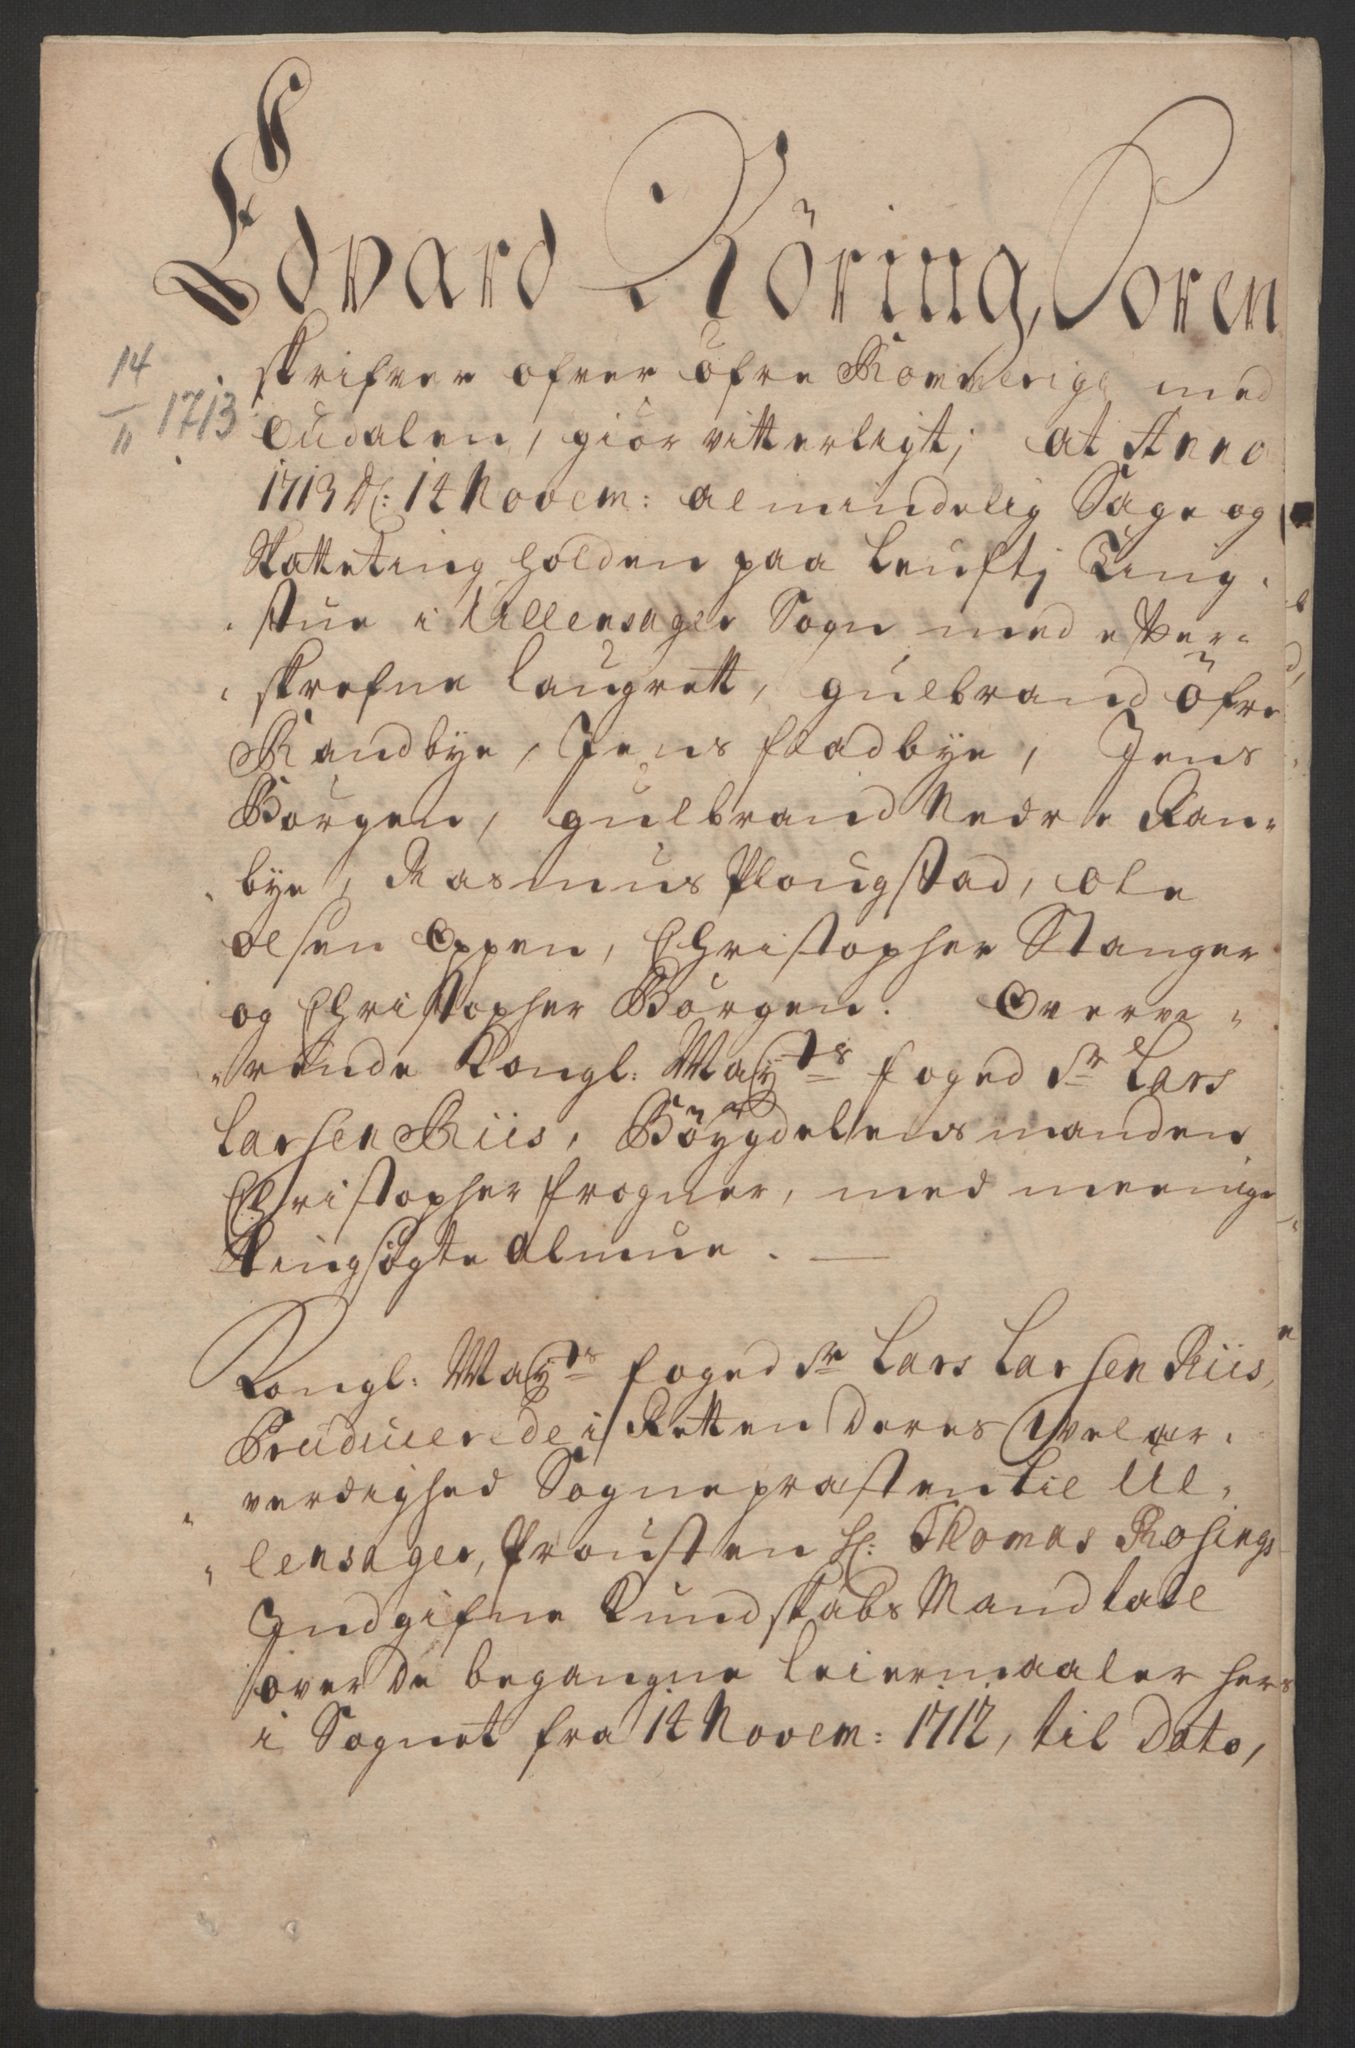 Edvard Röring, Soren
skrifver ofver öfre Rommerige med
Oudalen, giör vitterligt; at Anno
14/11 1713
1713 d: 14 Novem: almindelig Sage og
Skatteting holden paa Leufti Ting-
stue i Ullensager Sogn med efter-
skrefne Laugrett, gulbrand öfre
Randbye, Jens Stadbye, Jens
Borgen, gulbrand Nedre Ran-
bye, Rasmus Plougstad, Ole
Olsen Oppen, Christopher Stanger
og Christopher Borgen. Overve-
rende Kongl: Mayts foged Sr Lars
Larsen Riis, Böygdelensmanden
Christopher frogner, med meenige
Tingsögte Almue. —
Kongl: Mayts foged Sr Lars Larsen Riis,
Producerede i Retten Deres Welær-
verdighed Sognepræsten til Ul-
lensager, Prousten Hr: Thomas Rosings
Indgifne Kundskabs Mandtall
over De begangne Leiermaaler her
i Sognet fra 14 Novem: 1712, til Dato,